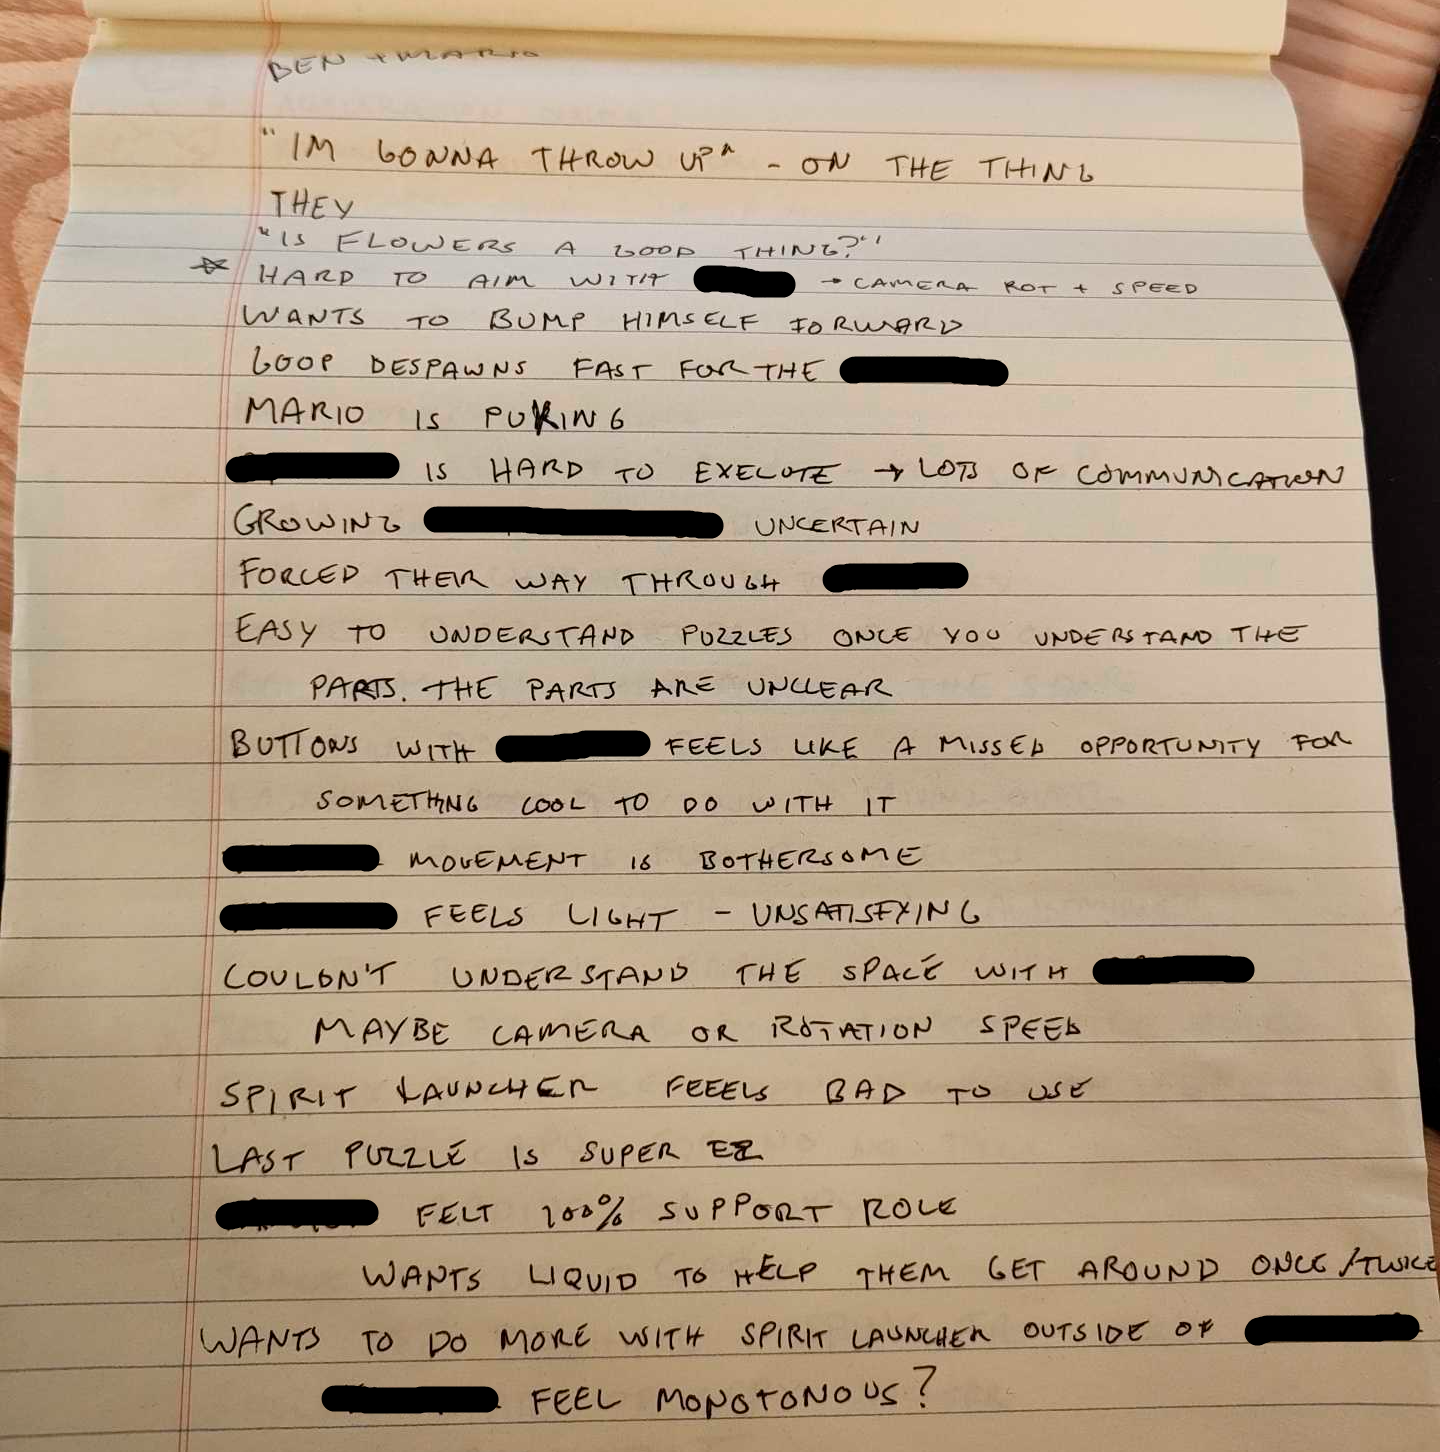 BEN + MARIO
"IM GONNA THROW UP" - ON THE THING
THEY
"IS FLOWERS A GOOD THING?"
☆ HARD TO AIM WITH → CAMERA ROT + SPEED
WANTS TO BUMP HIMSELF FORWARD
GOOP DESPAWNS FAST FOR THE
MARIO IS PUKING
IS HARD TO EXECUTE → LOTS OF COMMUNICATION
GROWING UNCERTAIN
FORCED THEIR WAY THROUGH
EASY TO UNDERSTAND PUZZLES ONCE YOU UNDERSTAND THE
PARTS. THE PARTS ARE UNCLEAR
BUTTONS WITH FEELS LIKE A MISSED OPPORTUNITY FOR
SOMETHING COOL TO DO WITH IT
MOVEMENT IS BOTHERSOME
FEELS LIGHT - UNSATISFYING
COULDN'T UNDERSTAND THE SPACE WITH
MAYBE CAMERA OR ROTATION SPEED
SPIRIT LAUNCHER FEEELS BAD TO USE
LAST PUZZLE IS SUPER EZ
FELT 100% SUPPORT ROLE
WANTS LIQUID TO HELP THEM GET AROUND ONCE/TWICE
WANTS TO DO MORE WITH SPIRIT LAUNCHER OUTSIDE OF
FEEL MONOTONOUS?